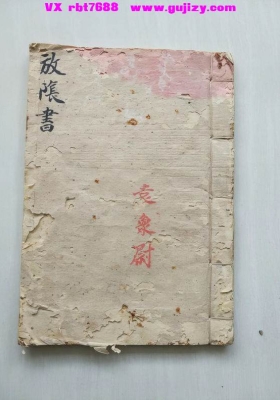 VX rbt7688 www.gujizy.com
放陰書
袁象尉